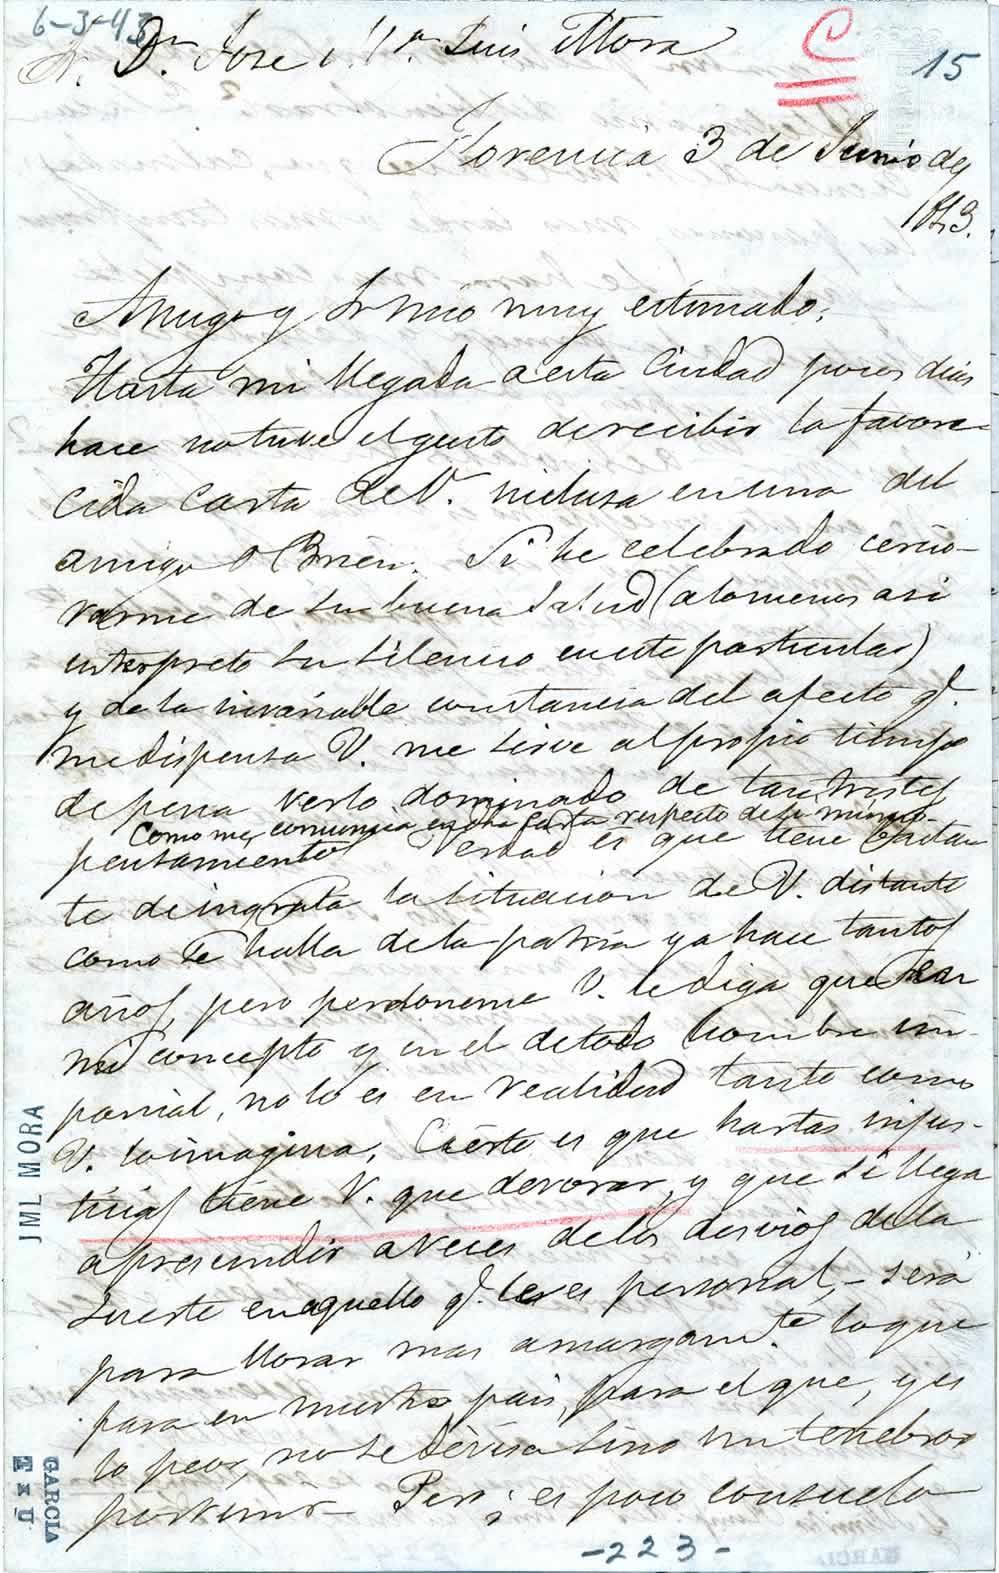 6-3-43
Sr. Dn. Jose Ma. Luis Mora
15
Florencia 3 de Junio de
1843.
Amigo y Sr mio muy estimado:
Hasta mi llegada a esta Ciudad pocos dias
hace no tuve el gusto de recibir la favore-
cida carta de V. inclusa en una del
amigo O Brien. Si he celebrado cercio-
rarme de su buena salud (a lo menos asi
interpreto su silencio en este particular)
y de la invariable constancia del afecto q.
me dispensa V. me sirve al propio tiempo
de pena verlo dominado de tan tristes
como me comunica en dha carta respecto de si mismo.
pensamientos Verdad es que tiene bastan
te de ingrata la situacion de V. distante
como se halla de la patria ya hace tantos
años, pero perdoneme V. le diga que en
mi concepto y en el de todo hombre im-
parcial, no lo es en realidad tanto como
V. lo imagina, Cierto es que hartas injus-
ticias tiene V. que devorar, y que si llega
a prescindir a veces de los desvios de la
suerte en aquello q. le es personal, - será
para llorar mas amargamte. lo que
pasa en nuestro pais, para el que, y es
lo peor, no se devisa sino un tenebroso
porvenir - Pero ¿es poco consuelo
JML MORA
GARCIA
-223-